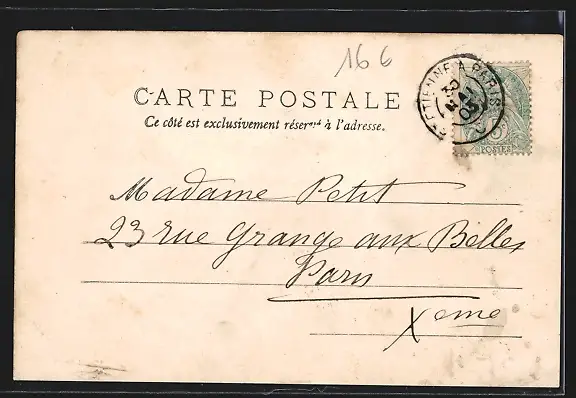 166
CARTE POSTALE
Ce côté est exclusivement réservé à l'adresse.
ETIENNE A PARIS
30
MAI
03
5c
POSTES
Madame Petit
23 rue Grange aux Belles
Paris
Xeme